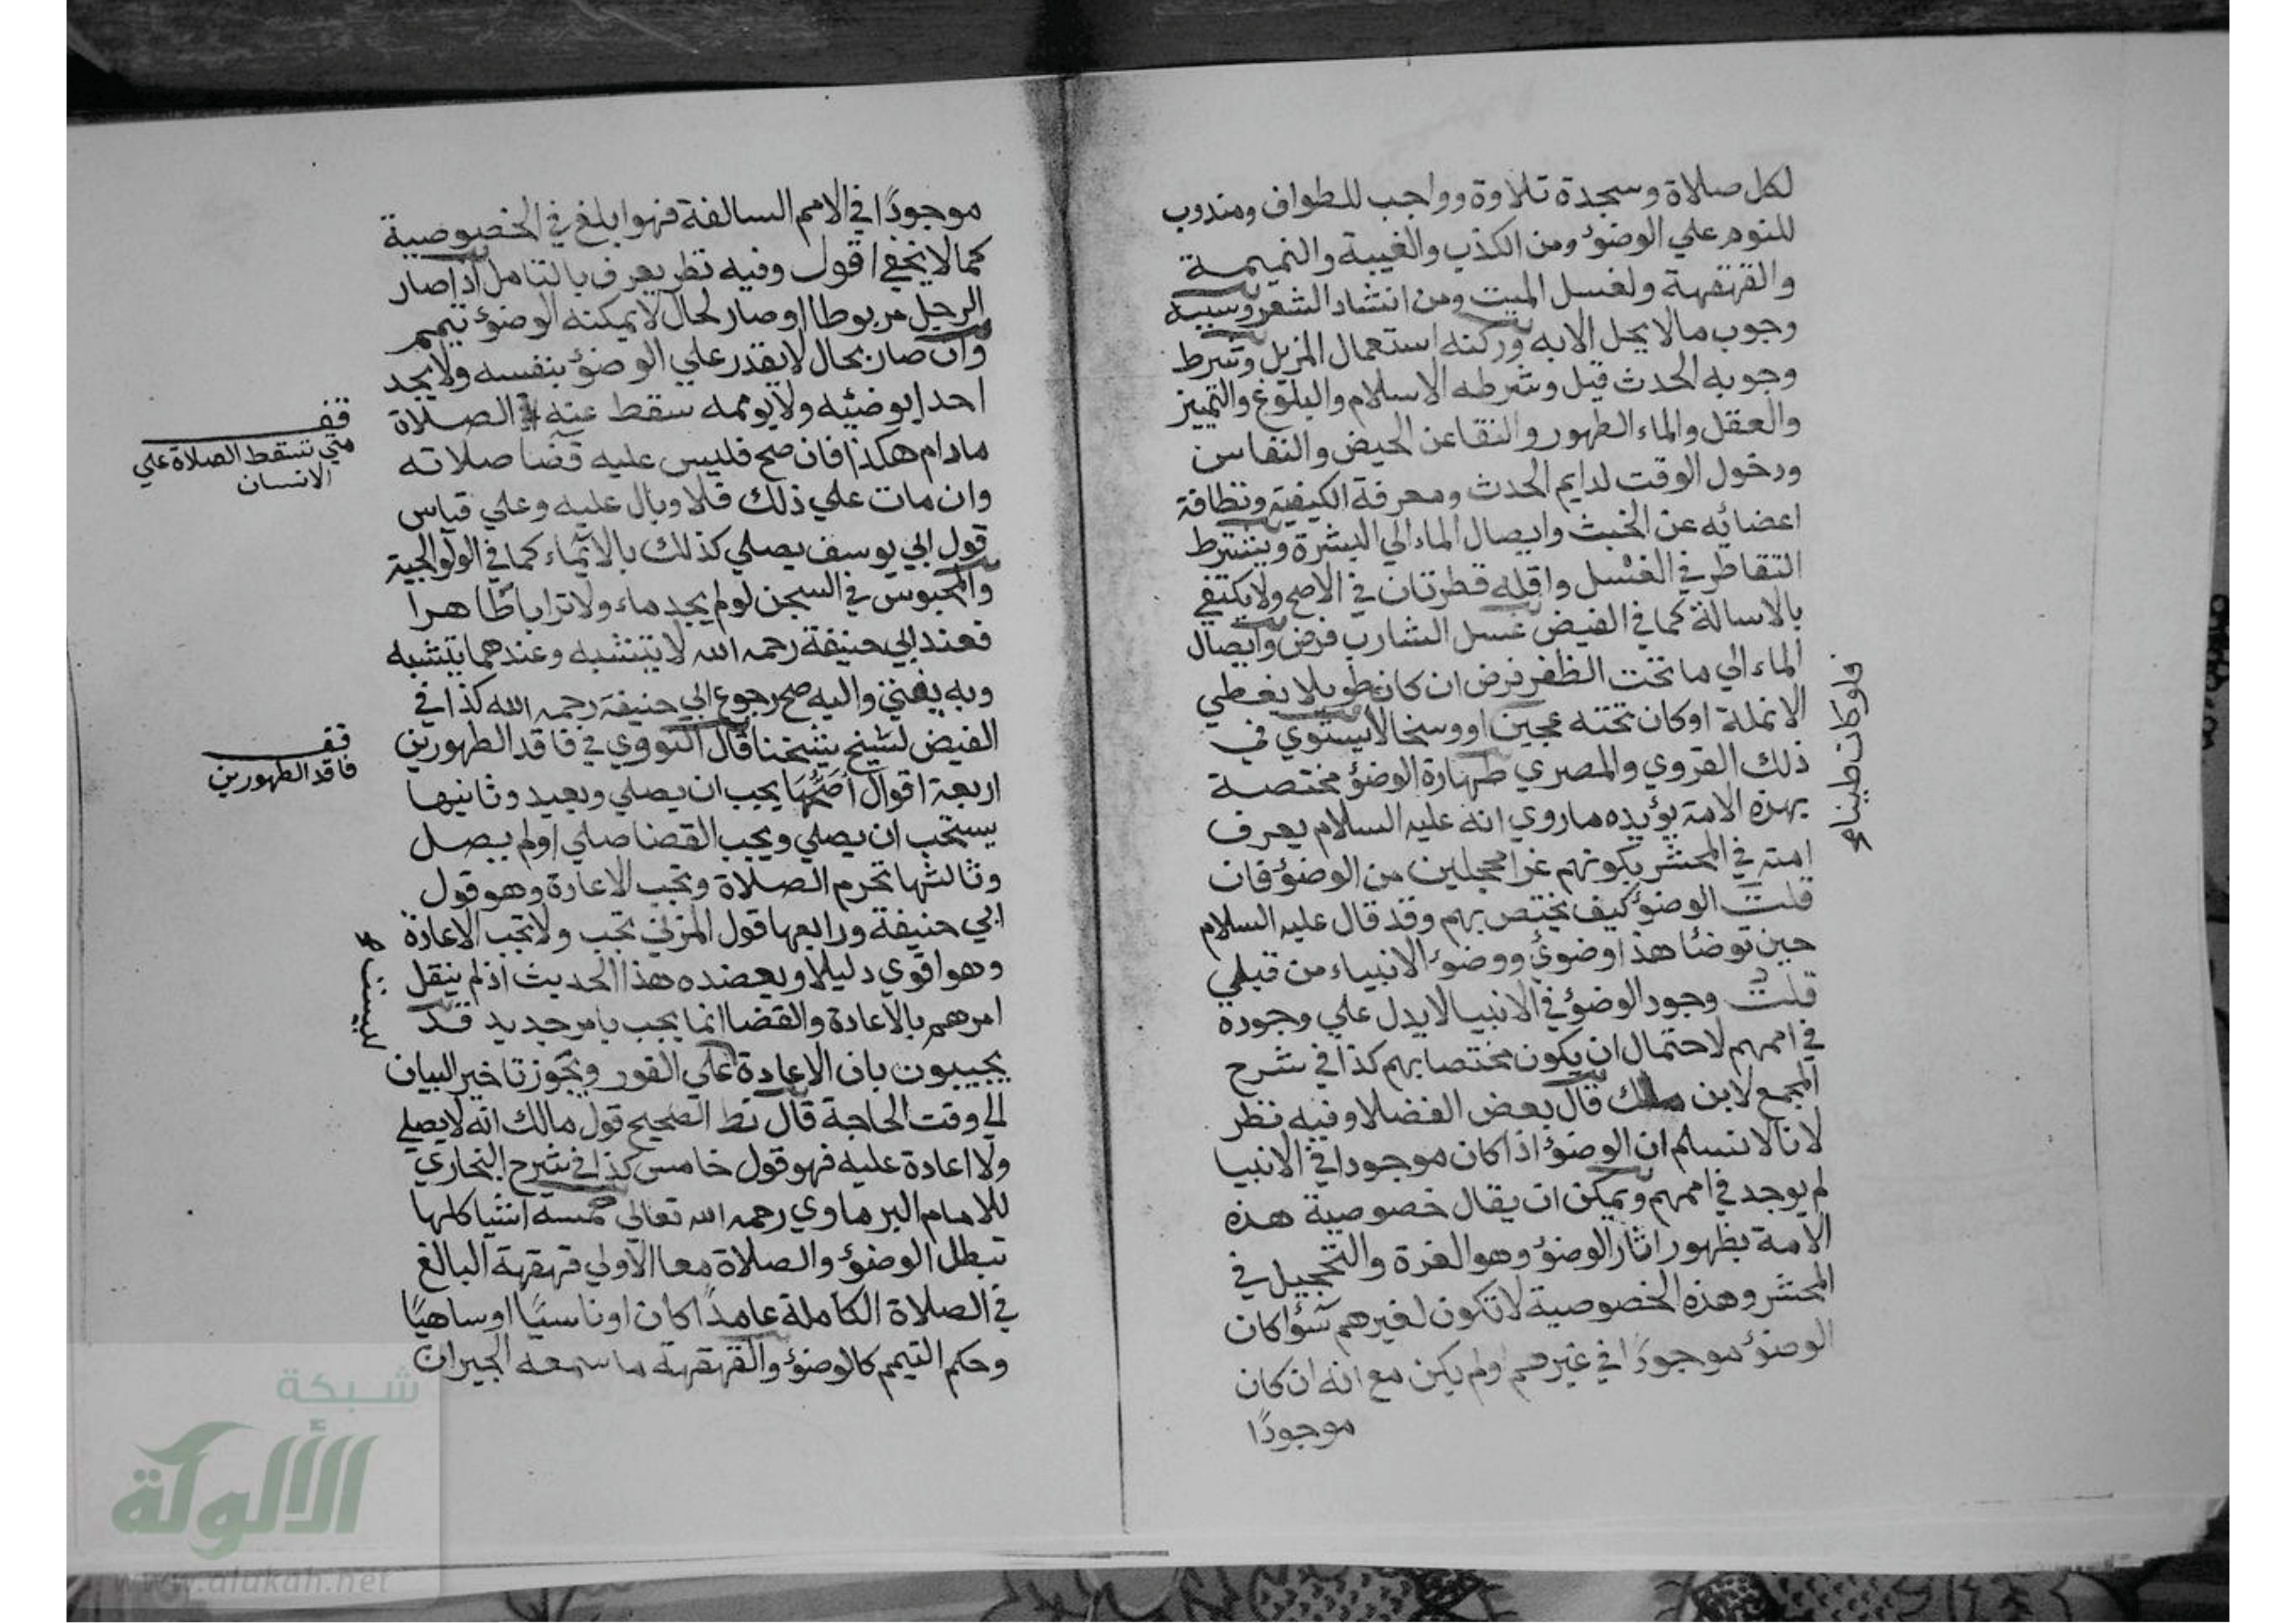 لكل صلاة وسجدة تلاوة وواجب للطواف ومندوب
للنوم علي الوضوء ومن الكذب والغيبة والنميمة
والقهقهة ولغسل الميت ومن انشاد الشعر وسببه
وجوب مالا يحل الابه وركنه استعمال المزيل وشرط
وجوبه الحدث قيل وشرطه الاسلام والبلوغ والتمييز
والعقل والماء الطهور والنقا عن الحيض والنفاس
ودخول الوقت لدايم الحدث ومعرفة الكيفية ونظافة
اعضائه عن الخبث وايصال الماء الي البشرة ويشترط
التقاطر في الغسل واقله قطرتان في الاصح ولا يكتفي
بالاسالة كما في الفيض غسل الشارب فرض وايصال
الماء الي ما تحت الظفر فرض ان كان طويلا يغطي
الانملة او كان تحته عجين او وسخا لا يستوي في
ذلك القروي والمصري طهارة الوضوء مختصة
بهذه الامة يؤيده ماروي انه عليه السلام يعرف
امته في المحشر بكونهم غرا محجلين من الوضوء فان
قلت الوضوء كيف يختص بهم وقد قال عليه السلام
حين توضا هذا وضوئ ووضوء الانبياء من قبلي
قلت وجود الوضوء في الانبيا لا يدل علي وجوده
في اممهم لاحتمال ان يكون مختصا بهم كذا في شرح
المجمع لابن ملك قال بعض الفضلا وفيه نظر
لانا لا نسلم ان الوضوء اذا كان موجودا في الانبيا
لم يوجد في اممهم ويمكن ان يقال خصوصية هذه
الامة بظهور اثار الوضوء وهو الغرة والتحجيل في
المحشر وهذه الخصوصية لا تكون لغيرهم سؤا كان
الوضوء موجودًا في غيرهم اولم يكن مع انه ان كان
موجودًا
موجودًا في الامم السالفة فهو ابلغ في الخصوصية
كما لا يخفي اقول وفيه نظر يعرف بالتامل اذا صار
الرجل مربوطا او صار لحال لا يمكنه الوضوء تيمم
وان صار بحال لا يقدر علي الوضوء بنفسه ولا يجد
احدا يوضئيه ولا يوممه سقط عنه الصلاة
مادام هكذا فان صح فليس عليه قضا صلاته
وان مات علي ذلك فلا وبال عليه وعلي قياس
قول ابي يوسف يصلي كذلك بالائماء كما في الولوالجية
والمحبوس في السجن لو لم يجد ماء ولا ترابا طاهرا
فعند ابي حنيفة رحمه الله لا يتشبه وعندهما يتشبه
وبه يفتي واليه صح رجوع ابي حنيفة رحمه الله كذا في
الفيض لشيخ شيخنا قال النووي في فاقد الطهورين
اربعة اقوال اصحها يجب ان يصلي ويعيد وثانيها
يستحب ان يصلي ويجب القضا صلي اولم يصل
وثالثها تحرم الصلاة وتجب الاعادة وهو قول
ابي حنيفة ورابعها قول المزني تجب ولا تجب الاعادة
وهو اقوي دليلا ويعضده هذا الحديث اذ لم ينقل
امرهم بالاعادة والقضا انما يجب بامر جديد قد
يجيبون بان الاعادة علي الفور ويجوز تاخير البيان
الي وقت الحاجة قال نط الصحيح قول مالك انه لا يصلي
ولا اعادة عليه فهو قول خامس كذا في شرح البخاري
للامام البرماوي رحمه الله تعالي خمسه اشيا كلها
تبطل الوضوء والصلاة معا الاولي قهقهة البالغ
في الصلاة الكاملة عامدًا كان او ناسيًا او ساهيًا
وحكم التيمم كالوضوء والقهقهة ما سمعه الجيران
قف
متي تسقط الصلاة علي
الانسان
قف
فاقد الطهورين
ليست
شبكة
الألوكة
www.alukah.net